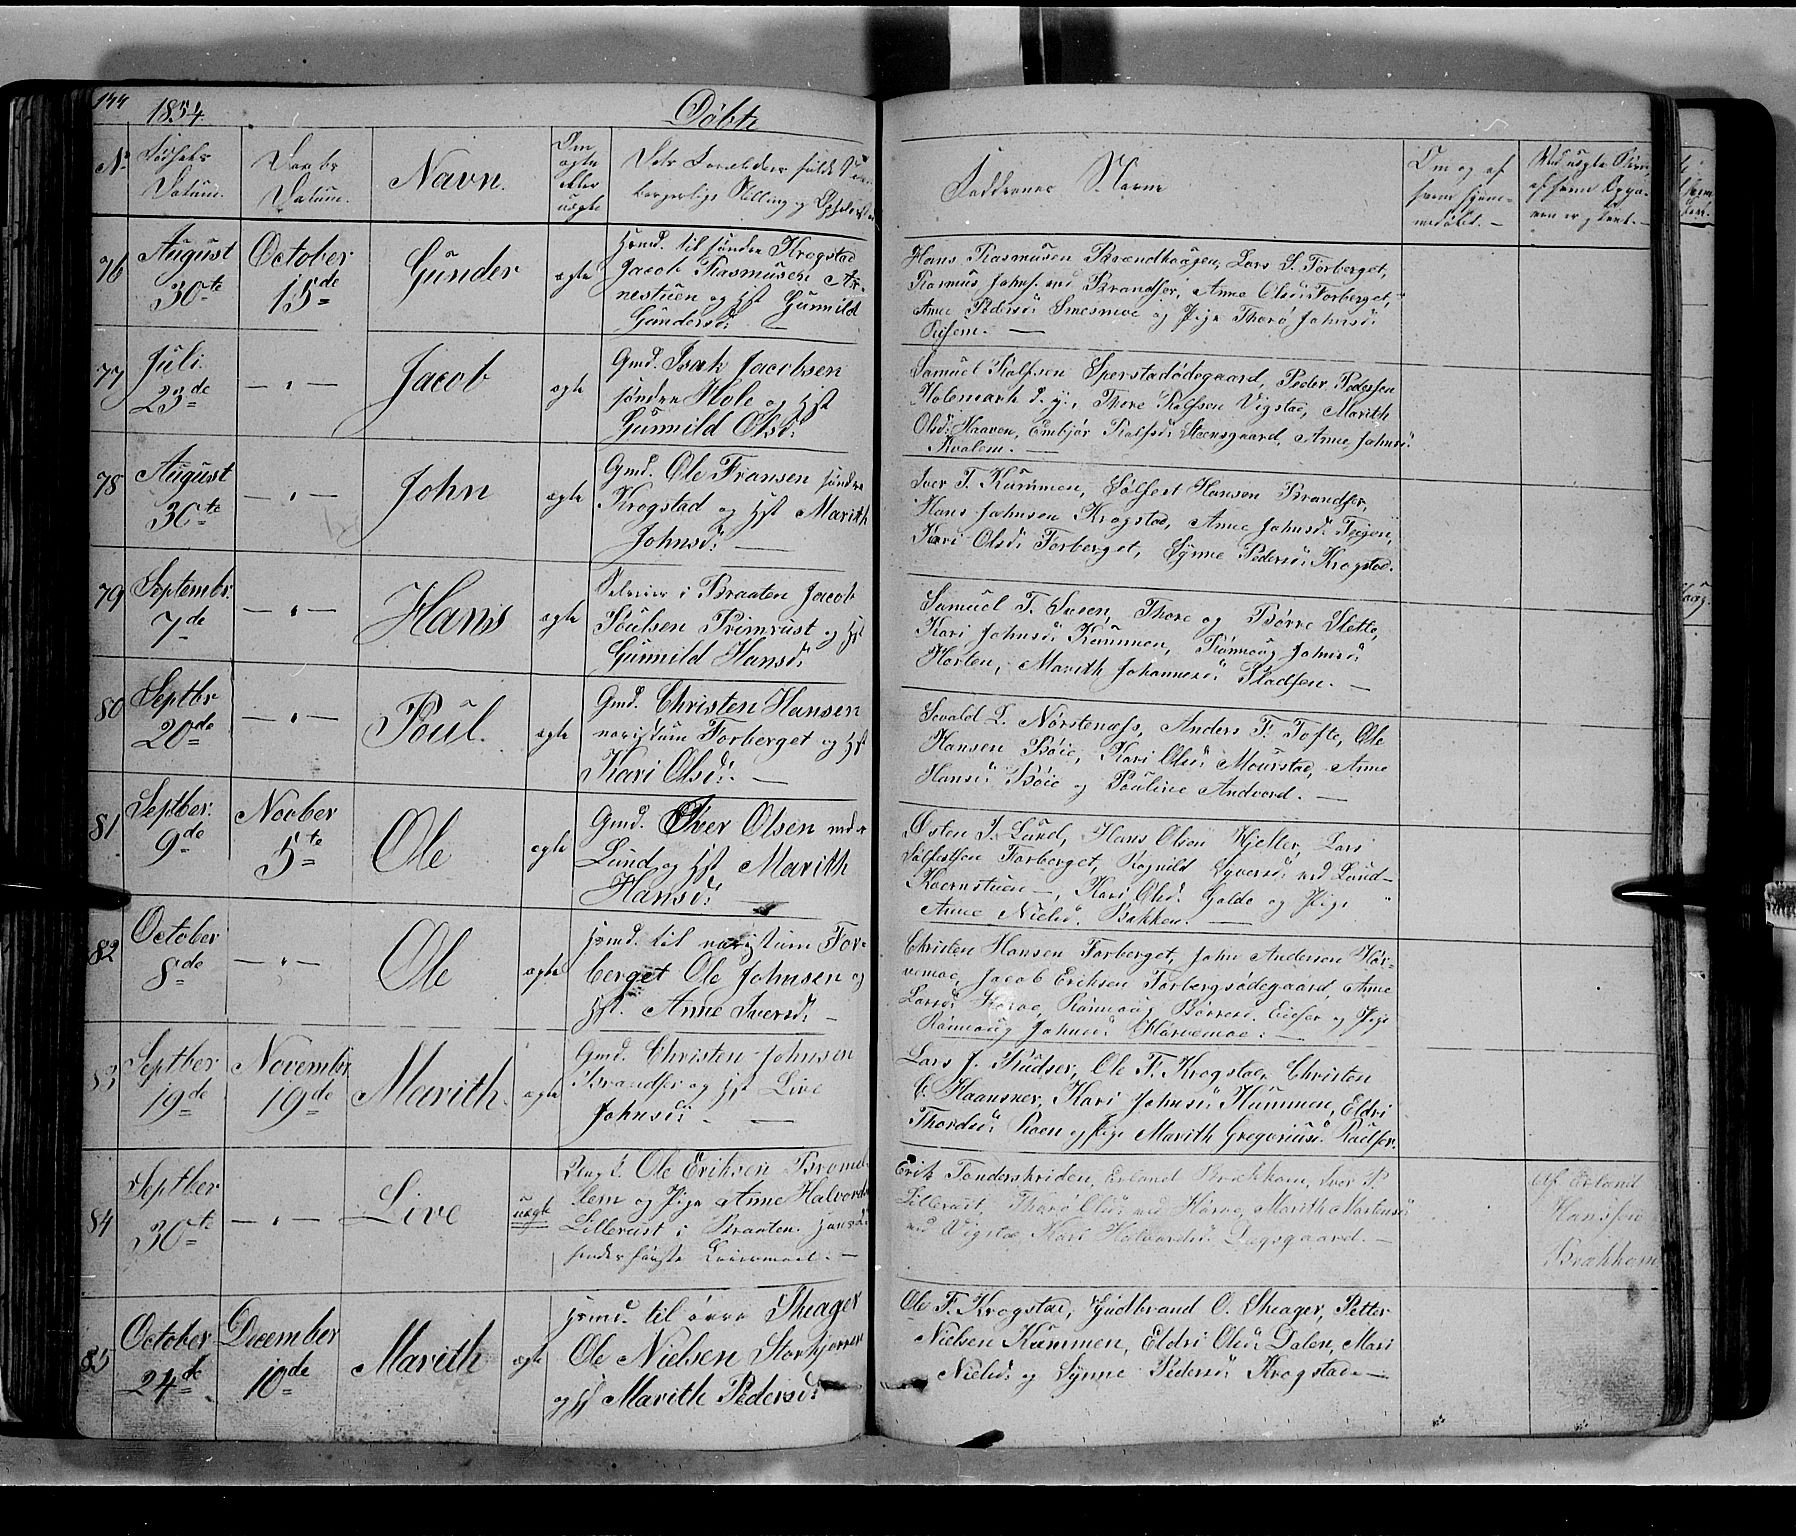 144 1854. Døbte
No Fødsels Datum. Daabs Datum. Navn. Om ægte eller uægte
Faddernes Navne
Om og af hvem hjemmedøbt.
76 August 30te October 15de Gunder ægte
Hmd. til søndre Krogstad
Jacob Rasmusen Ar-
nestuen og Hst Gunnild
Gundersd:
Hans Rasmusen Brændhaugen, Lars S. Forberget,
Rasmus Johns. ved Brandser, Anne Olsd: Forberget,
Anne Pedersd: Smesmoe og Pige Thorø Johnsd:
77 Juli 23de — " — Jacob ægte
Gmd. Isak Jacobsen
søndre Hole og Hst
Gunnild Olsd:
Samuel Rolfsen Sperstadødegaard, Peder Pedersen
Holemark d. y., Thore Rolfsen Vigstad, Marith
Olsd: Haaven, Embjør Rolfsd: Steensgaard, Anne Johnsd:
Kvalem. —
78 August 30te — " — John ægte
Gmd. Ole Fransen søndre
Krogstad og Hst Marith
Johnsd: —
Iver T. Kummen, Sølfest Hansen Brandser,
Hans Johnsen Krogstad, Anne Johnsd: Teigen,
Kari Olsd: Forberget, Synne Pedersd: Krogstad.
79 Septembr. 7de — " — Hans ægte
i Braaten Jacob
Poulsen Primrust og Hst
Gunnild Hansd:
Samuel T. Suen, Thore og Børre Slette,
Kari Johnsd: Kummen, Rønnoug Johnsd:
Horten, Marith Johannesd: Stadsen. —
80 Septbr 20de — " — Poul. ægte
Gmd. Christen Hansen
norigstum Forberget og Hst
Kari Olsd: —
Sevald L. Nørstenæss, Anders F. Tofte, Ole
Hansen Bøie, Kari Olsd: Mourstad, Anne
Hansd: Bøie og Pouline Andvord. —
81 Septber. 9de Novber 5te Ole ægte
Gmd. Iver Olsen nedre
Lund og Hst Marith
Hansd: —
Østen J. Lund, Hans Olsen Hjelter, Lars
Sølfestsen Forberget, Rognild Syversd: ved Lund-
Kvernstuen —, Kari Olsd: Galde og Pige
Anne Nielsd: Bakken. —
82 October 8de — " — Ole ægte
Hmd. til norigstum For-
berget Ole Johnsen og
Hst. Anne Iversd: —
Christen Hansen Forberget, John Andersen Hør-
vemoe, Jacob Eriksen Forbergsødegaard, Anne
Larsd: Rønnoug Børresd: og Pige
Rønnoug Johnsd: Hørvemoe: —
83 Septber 19de Novembr 19de Marith. ægte
Gmd. Christen Johnsen
Brandser og Hst Live
Johnsd: —
Lars J. Rudser, Ole F. Krogstad, Christen
C. Haansner, Kari Johnsd: Kummen, Eldri
Thordsd: Roen og Pige Marith Gregoriusd: Rudser.
84 Septber 30te — " — Live uægte
Ungk. Ole Eriksen Bræmd-
lem og Pige Anne Halvorsd:
Lillerust i Braaten. Hans 2det
hendes første Leiermaal. —
Erik Tonderskriden, Erland Brækkom, Iver P.
Lillerust, Thorø Olsd: ved Hørve, Marith Mortensd:
ved Vigstad Kari Halvordsd: Dagsgaard. —
Af Erland
Hansson
Brækkom
85 October 24de December 10de Marith ægte
Hmd. til øvre Skeager
Ole Nielsen Storkjørren
og Hst Marith Pedersd:
Ole F. Krogstad, Gudbrand O. Skeager, Petter
Nielsen Kummen, Eldri Olsd: Dalen, Mari
Nielsd: og Synne Pedersd: Krogstad. —